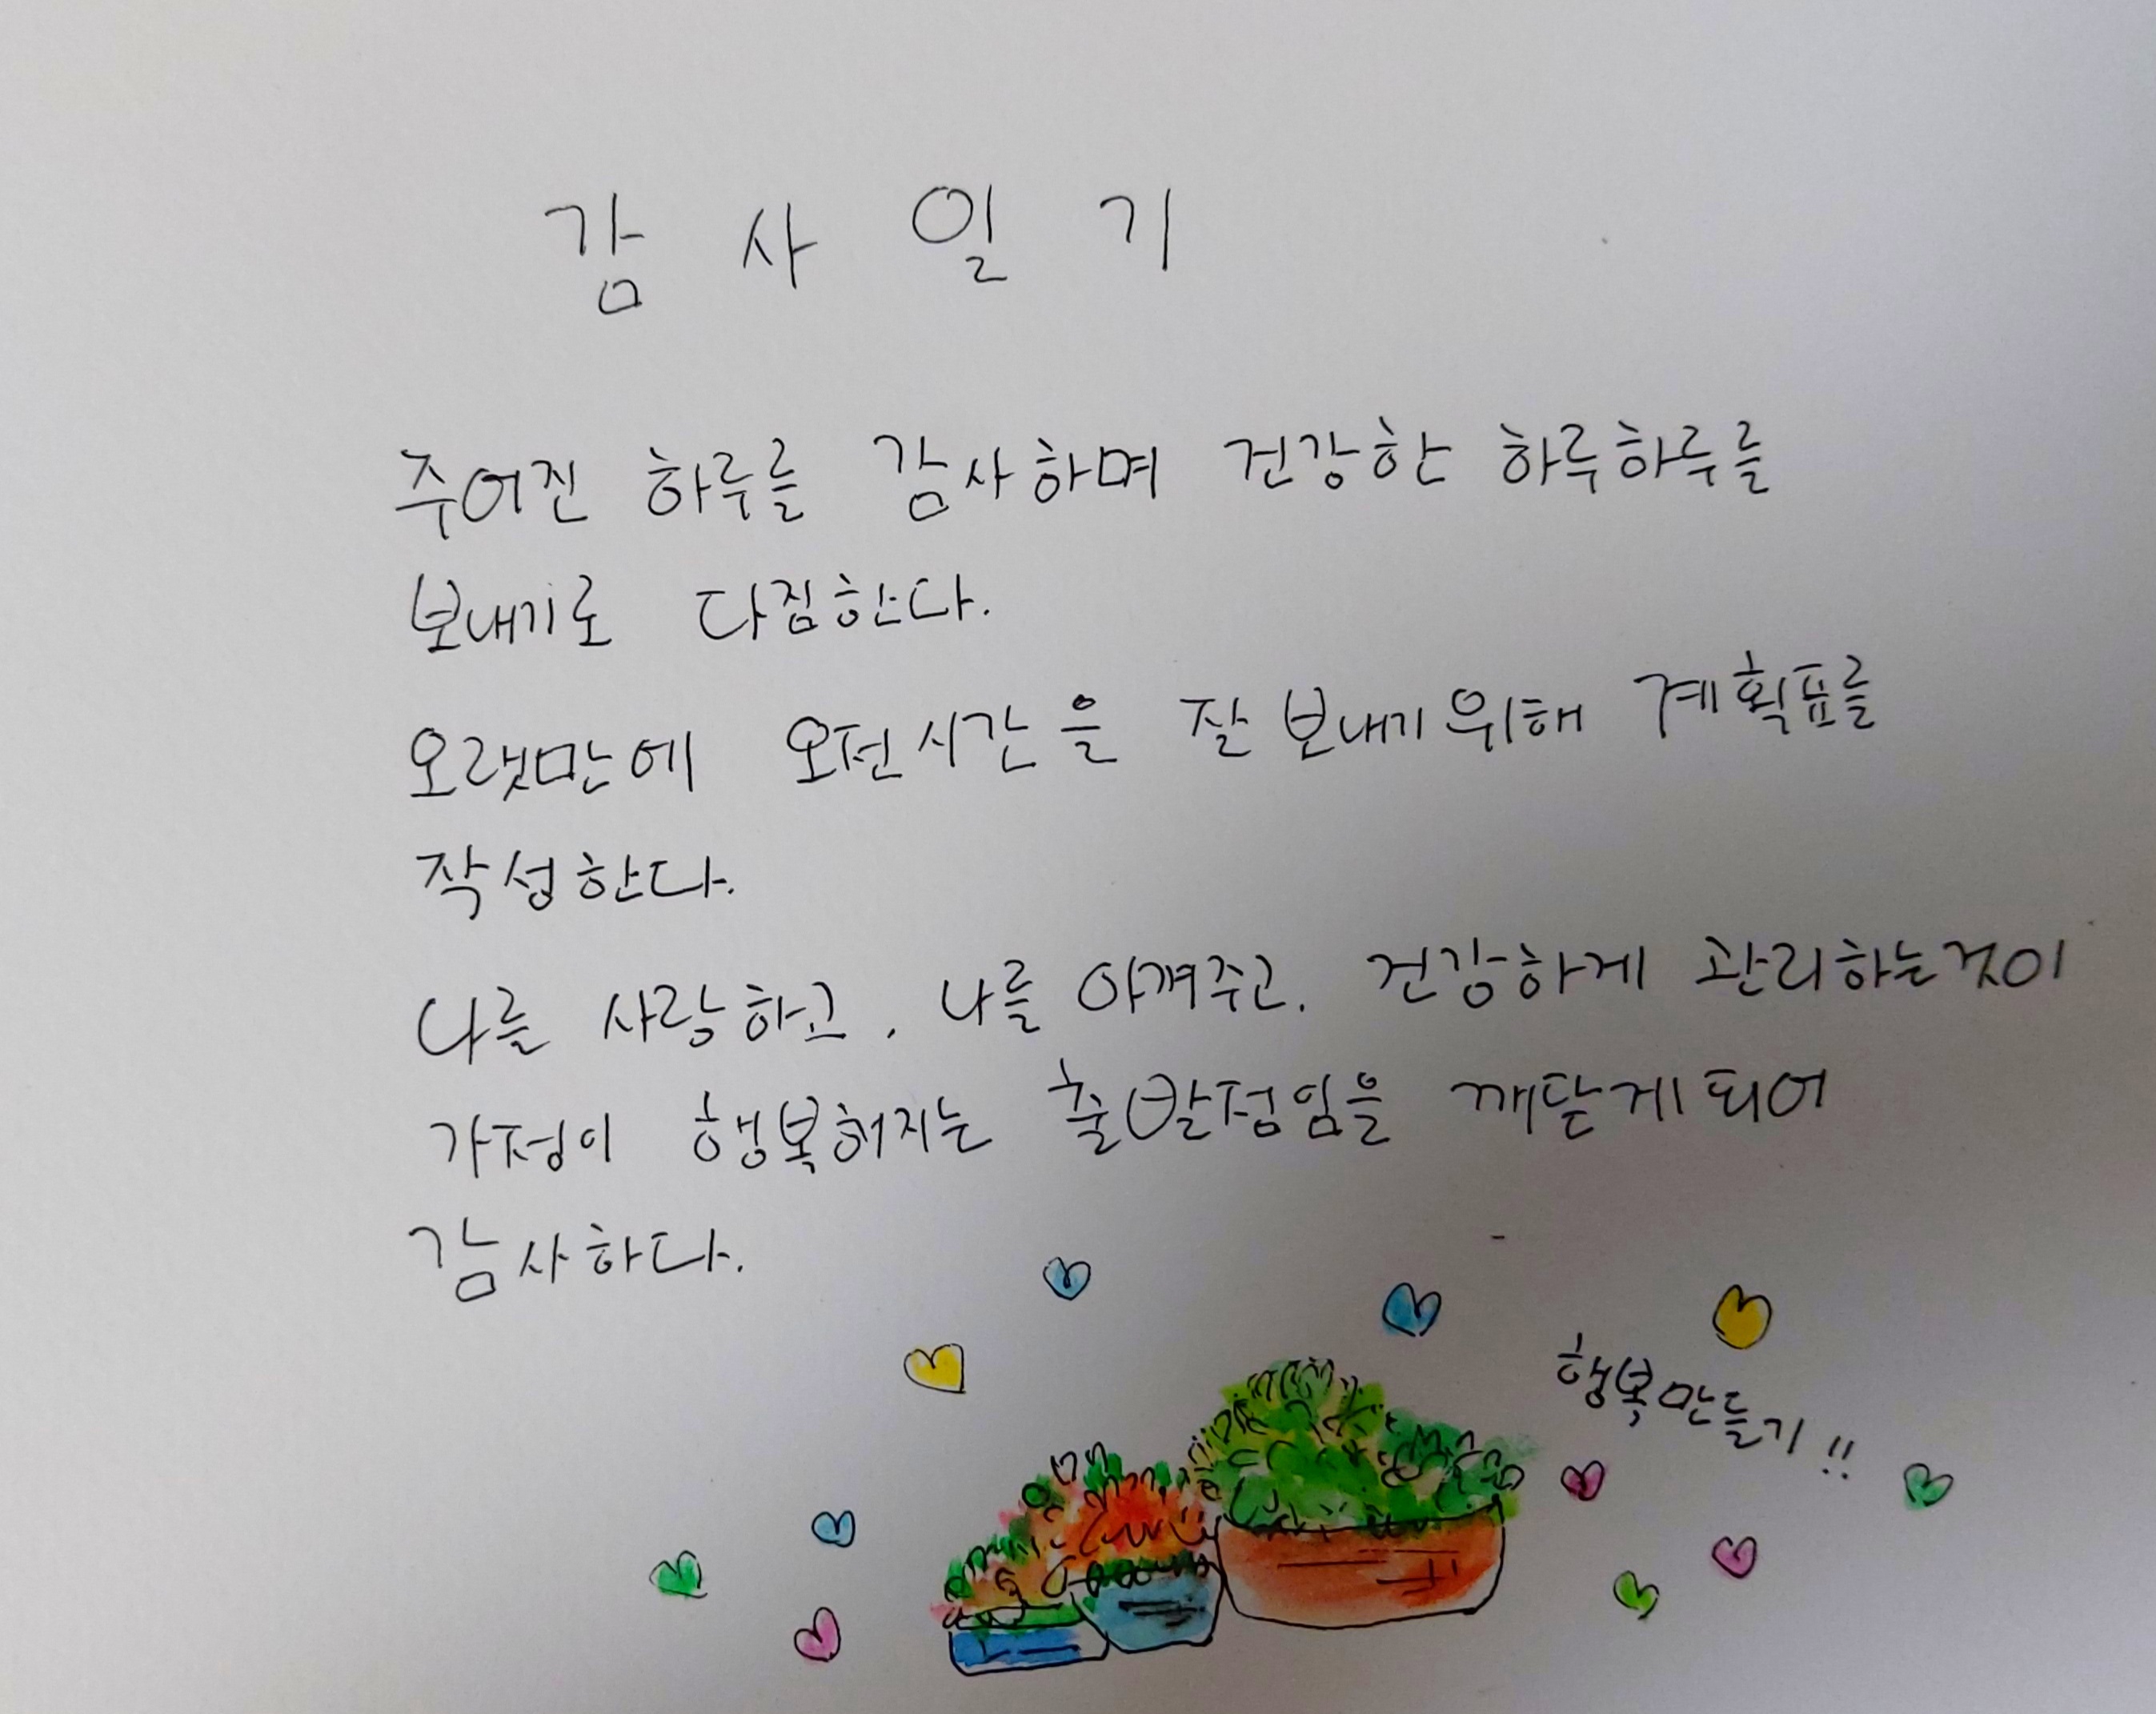 감 사 일 기
주어진 하루를 감사하며 건강한 하루하루를
보내기로 다짐한다.
오랫만에 오전시간을 잘 보내기위해 계획표를
작성한다.
나를 사랑하고, 나를 아껴주고, 건강하게 관리하는것이
가정이 행복허지는 출발점임을 깨닫게되어
감사하다.
행복만들기!!